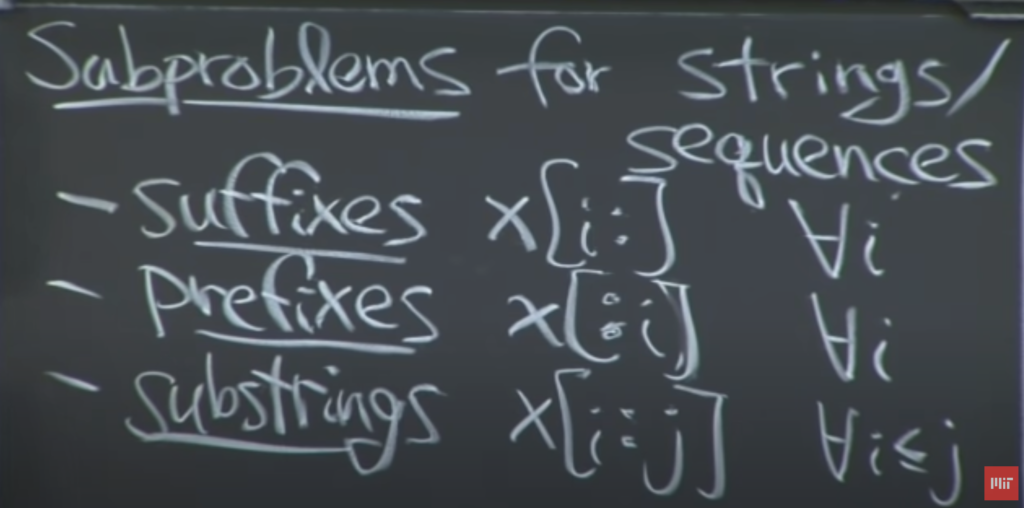 Subproblems for strings/
sequences
- suffixes x[i:] ∀i
- prefixes x[:i] ∀i
- substrings x[i:j] ∀i≤j
MIT